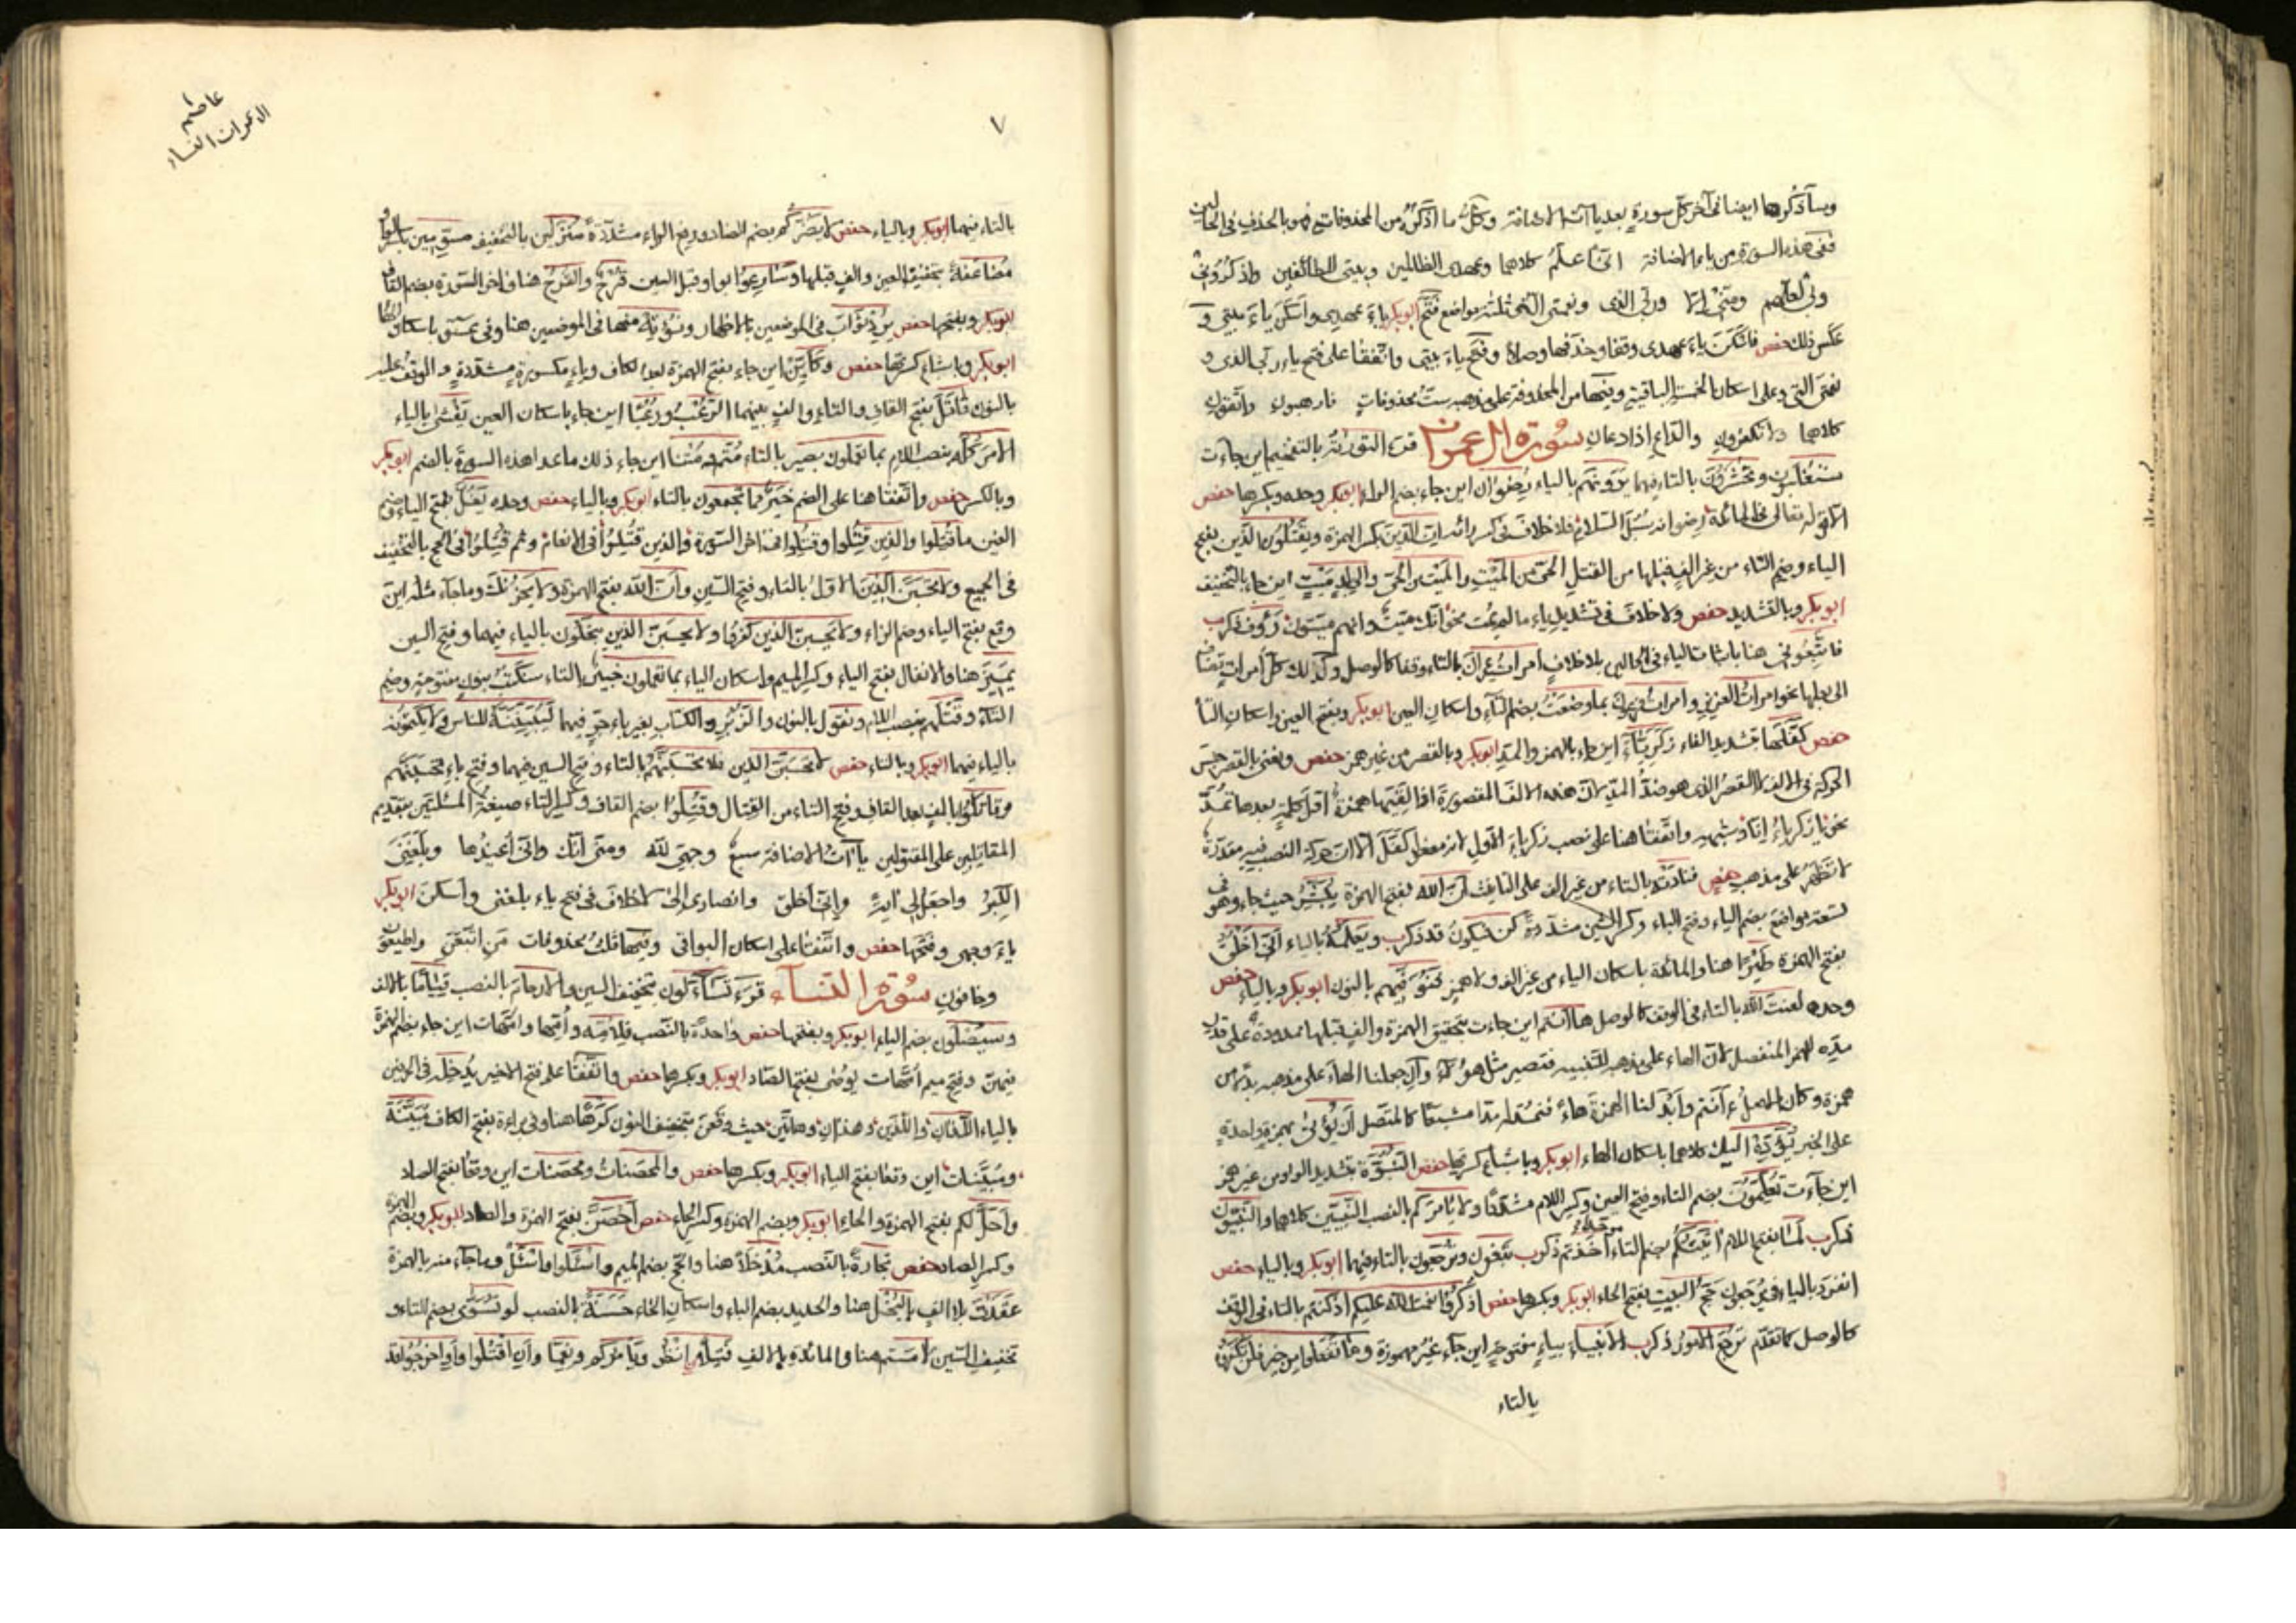 وسأذكرها ايضا فى آخر كل سورة بعد ياآت الاضافة وكل ما اذكره من المحذوفات فهو بالحذف فى الحالين
ففى هذه السورة من ياء الاضافة انى اعلم كلاهما وعهدى الظالمين وبيتى للطائفين واذكرونى
ولى لعلهم ومنى الا وربى الذى ونعمتى التى ثلثة مواضع فتح ابوبكر ياء عهدى واسكن ياء بيتى و
عكس ذلك حفص فاسكن ياء عهدى وقفا وحذفها وصلا وفتح ياء بيتى واتفقا على فتح ياء ربى الذى و
نعمتى التى وعلى اسكان الخمس الباقية وفيها من المحذوفة على مذهبه ست محذوفات فارهبون واتقون
كلاهما ولا تكفرون والداع اذا دعان سورة ال عمران قرء التورية بالتفخيم اين جاءت
ستغلبون وتحشرون بالتاء فيهما يرونهم بالياء رضوان اين جاء بضم الراء ابوبكر وحده وبكسرها حفص
الا قوله تعالى فى المائدة رضوانه سبل السلام فلا خلاف فى كسر رائه ان الدين بكسر الهمزة ويقتلون الذين بفتح
الياء وضم التاء من غير الف قبلها من القتل الحى من الميت والميت من الحى والى بلد ميت اين جاء بالتخفيف
ابوبكر وبالتشديد حفص ولا خلاف فى تشديد ياء ما لم يمت نحو انك ميت وانهم ميتون رؤف ذكرب
فاتبعونى هنا باثبات الياء فى الحالين بلا خلاف امرات عمران بالتاء وقفا كالوصل وكذلك كل امرات تضاف
الى بعلها نحو امرات العزيز وامرات فرعون بما وضعت بضم التاء واسكان العين ابوبكر وبفتح العين واسكان التاء
حفص كفلها بتشديد الفاء زكرياء اين جاء بالهمز والمد ابوبكر وبالقصر من غير همز حفص ونعنى بالقصر حبس
الحركة فى الالف لا القصر الذى هو ضد المد لان هذه الالف المقصورة اذا لقيتها همزة اول كلمة بعدها تمد
نحو يا زكرياء انا وشبهه واتفقا هنا على نصب زكرياء الاول لانه مفعول كفل الا ان حركة النصب فيه مقدرة
لا تظهر على مذهب حفص فنادته بالتاء من غير الف على التانيث ان الله بفتح الهمزة يبشر حيث جاء وهو فى
تسعة مواضع بضم الياء وفتح الباء وكسر الشين مشددة كن فيكون قد ذكرب ويعلمه بالياء انى اخلق
بفتح الهمزة طيرا هنا والمائدة باسكان الياء من غير الف ولا همز فنوفيهم بالنون ابوبكر وبالياء حفص
وحده لعنت الله بالتاء فى الوقف كالوصل هاانتم اين جاءت بتحقيق الهمزة والف قبلها ممدودة على قدر
مده للهمز المنفصل لان الهاء على مذهبه للتنبيه فتصير مثل هؤلاء وان جعلنا الهاء على مذهبه بدلا من
همزة وكان الاصل ءانتم وابدلنا الهمزة هاء فنمد له مدا مشبعا كالمتصل ان يؤتى بهمزة واحدة
على الخبر يؤده اليك كلاهما باسكان الهاء ابوبكر وباشباع كسرتها حفص النبوة بتشديد الواو من غير همز
اين جاءت تعلمون بضم التاء وفتح العين وكسر اللام مشددا ولا يامركم بالنصب النبيين كلاهما والنبيون
ذكرب لما بفتح اللام اتيتكم بضم التاء اخذتم ذكرب تبغون وترجعون بالتاء فيهما ابوبكر وبالياء حفص
انفرد بالياء فى يرجعون حج البيت بفتح الحاء ابوبكر وبكسرها حفص اذكروا نعمت الله عليكم اذ كنتم بالتاء فى الوقف
كالوصل كما تقدم ترجع الامور ذكرب الانبياء بياء مفتوحة اين جاء غير مهموزة وما تفعلوا من خير فلن تكفروه
بالتاء
عاصم
ال عمران النساء
٧
بالتاء فيهما ابوبكر وبالياء حفص لا يضركم بضم الضاد ورفع الراء مشددة منزلين بالتخفيف مسومين بكسر الواو
مضاعفة بتخفيف العين والف قبلها وسارعوا بواو قبل السين قرح والقرح هنا وفى اخر السورة بضم القاف
ابوبكر وبفتحها حفص يرد ثواب فى الموضعين بالاظهار ونؤته منها فى الموضعين هنا وفى عسق باسكان الهاء
ابوبكر وباشباع كسرتها حفص وكاين اين جاء بفتح الهمزة بعد الكاف وياء مكسورة مشددة والوقف عليه
بالنون قاتل بفتح القاف والتاء والف بينهما الرعب ورعبا اين جاء باسكان العين يغشى بالياء
الامر كله بنصب اللام بما تعملون بصير بالتاء متم ومتنا اين جاء ذلك ما عدا هذه السورة بالضم ابوبكر
وبالكسر حفص واتفقا هنا على الضم خير مما تجمعون بالتاء ابوبكر وبالياء حفص وحده يغل بفتح الياء وضم
الغين ما قتلوا والذين قتلوا وقتلوا فى اخر السورة والذين قتلوا فى الانعام وثم قتلوا فى الحج بالتخفيف
فى الجميع ولا تحسبن الذين الاول بالتاء وفتح السين وان الله بفتح الهمزة ولا يحزنك وما جاء مثله اين
وقع بفتح الياء وضم الزاء ولا يحسبن الذين كفروا ولا يحسبن الذين يبخلون بالياء فيهما وفتح السين
يميز هنا والانفال بفتح الياء وكسر الميم واسكان الياء بما تعملون خبير بالتاء سنكتب بنون مفتوحة وضم
التاء وقتلهم بنصب اللام ونقول بالنون والزبر والكتاب بغير باء جر فيهما ليبيننه للناس ولا يكتمونه
بالياء فيهما ابوبكر وبالتاء حفص لا تحسبن الذين فلا تحسبنهم بالتاء وفتح السين فيهما وفتح باء تحسبنهم
وقاتلوا بالف بعد القاف وفتح التاء من القتال وقتلوا بضم القاف وكسر التاء صيغة المسئلتين بتقديم
المقاتلين على المقتولين ياآت الاضافة سبع وجهى لله ومنى انك وانى اعيذها وبلغنى
الكبر واجعل لى اية وانى اخلق وانصارى الى لا خلاف فى فتح ياء بلغنى واسكن ابوبكر
ياء وجهى وفتحها حفص واتفقا على اسكان البواقى وفيها ثلث محذوفات من اتبعن واطيعون
وخافون سورة النساء قرء تساءلون بتخفيف السين والارحام بالنصب قياما بالالف
وسيصلون بضم الياء ابوبكر وبفتحها حفص واحدة بالنصب فلامه وامها وامهات اين جاء بضم الهمزة
فيهن وفتح ميم امهات يوصى بفتح الصاد ابوبكر وبكسرها حفص واتفقا على فتح الاخير يدخله فى الحرفين
بالياء اللذان واللذين وهذان وهاتين حيث وقعن بتخفيف النون كرها هنا وفى براءة بفتح الكاف مبينة
ومبينات اين وقعا بفتح الياء ابوبكر وبكسرها حفص والمحصنات ومحصنات اين وقعا بفتح الصاد
واحل لكم بفتح الهمزة والحاء ابوبكر وبضم الهمزة وكسر الحاء حفص احصن بفتح الهمزة والصاد ابوبكر وبضم الهمزة
وكسر الصاد حفص تجارة بالنصب مدخلا هنا والحج بضم الميم واسئلوا فاسئل وما جاء منه بالهمزة
عقدت بلا الف بالبخل هنا والحديد بضم الباء واسكان الخاء حسنة بالنصب لو تسوى بضم التاء و
تخفيف السين لامستم هنا والمائدة بالالف فتيلا انظر ويامركم ونعما وان اقتلوا واو اخرجوا قد